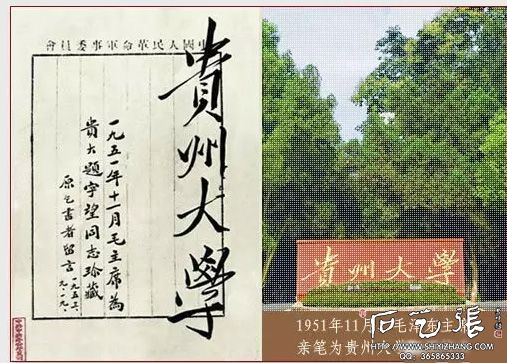 中國人民革命軍事委員會
貴州大學
一九五一年十一月毛主席為
貴大題字望同志珍藏
原乞書者留言
一九五三、
九、一九、
貴州大學
1951年11月毛泽东主
亲笔为贵州大
石艺張
WWW.SHIYIZHANG.COM
QQ:365865333